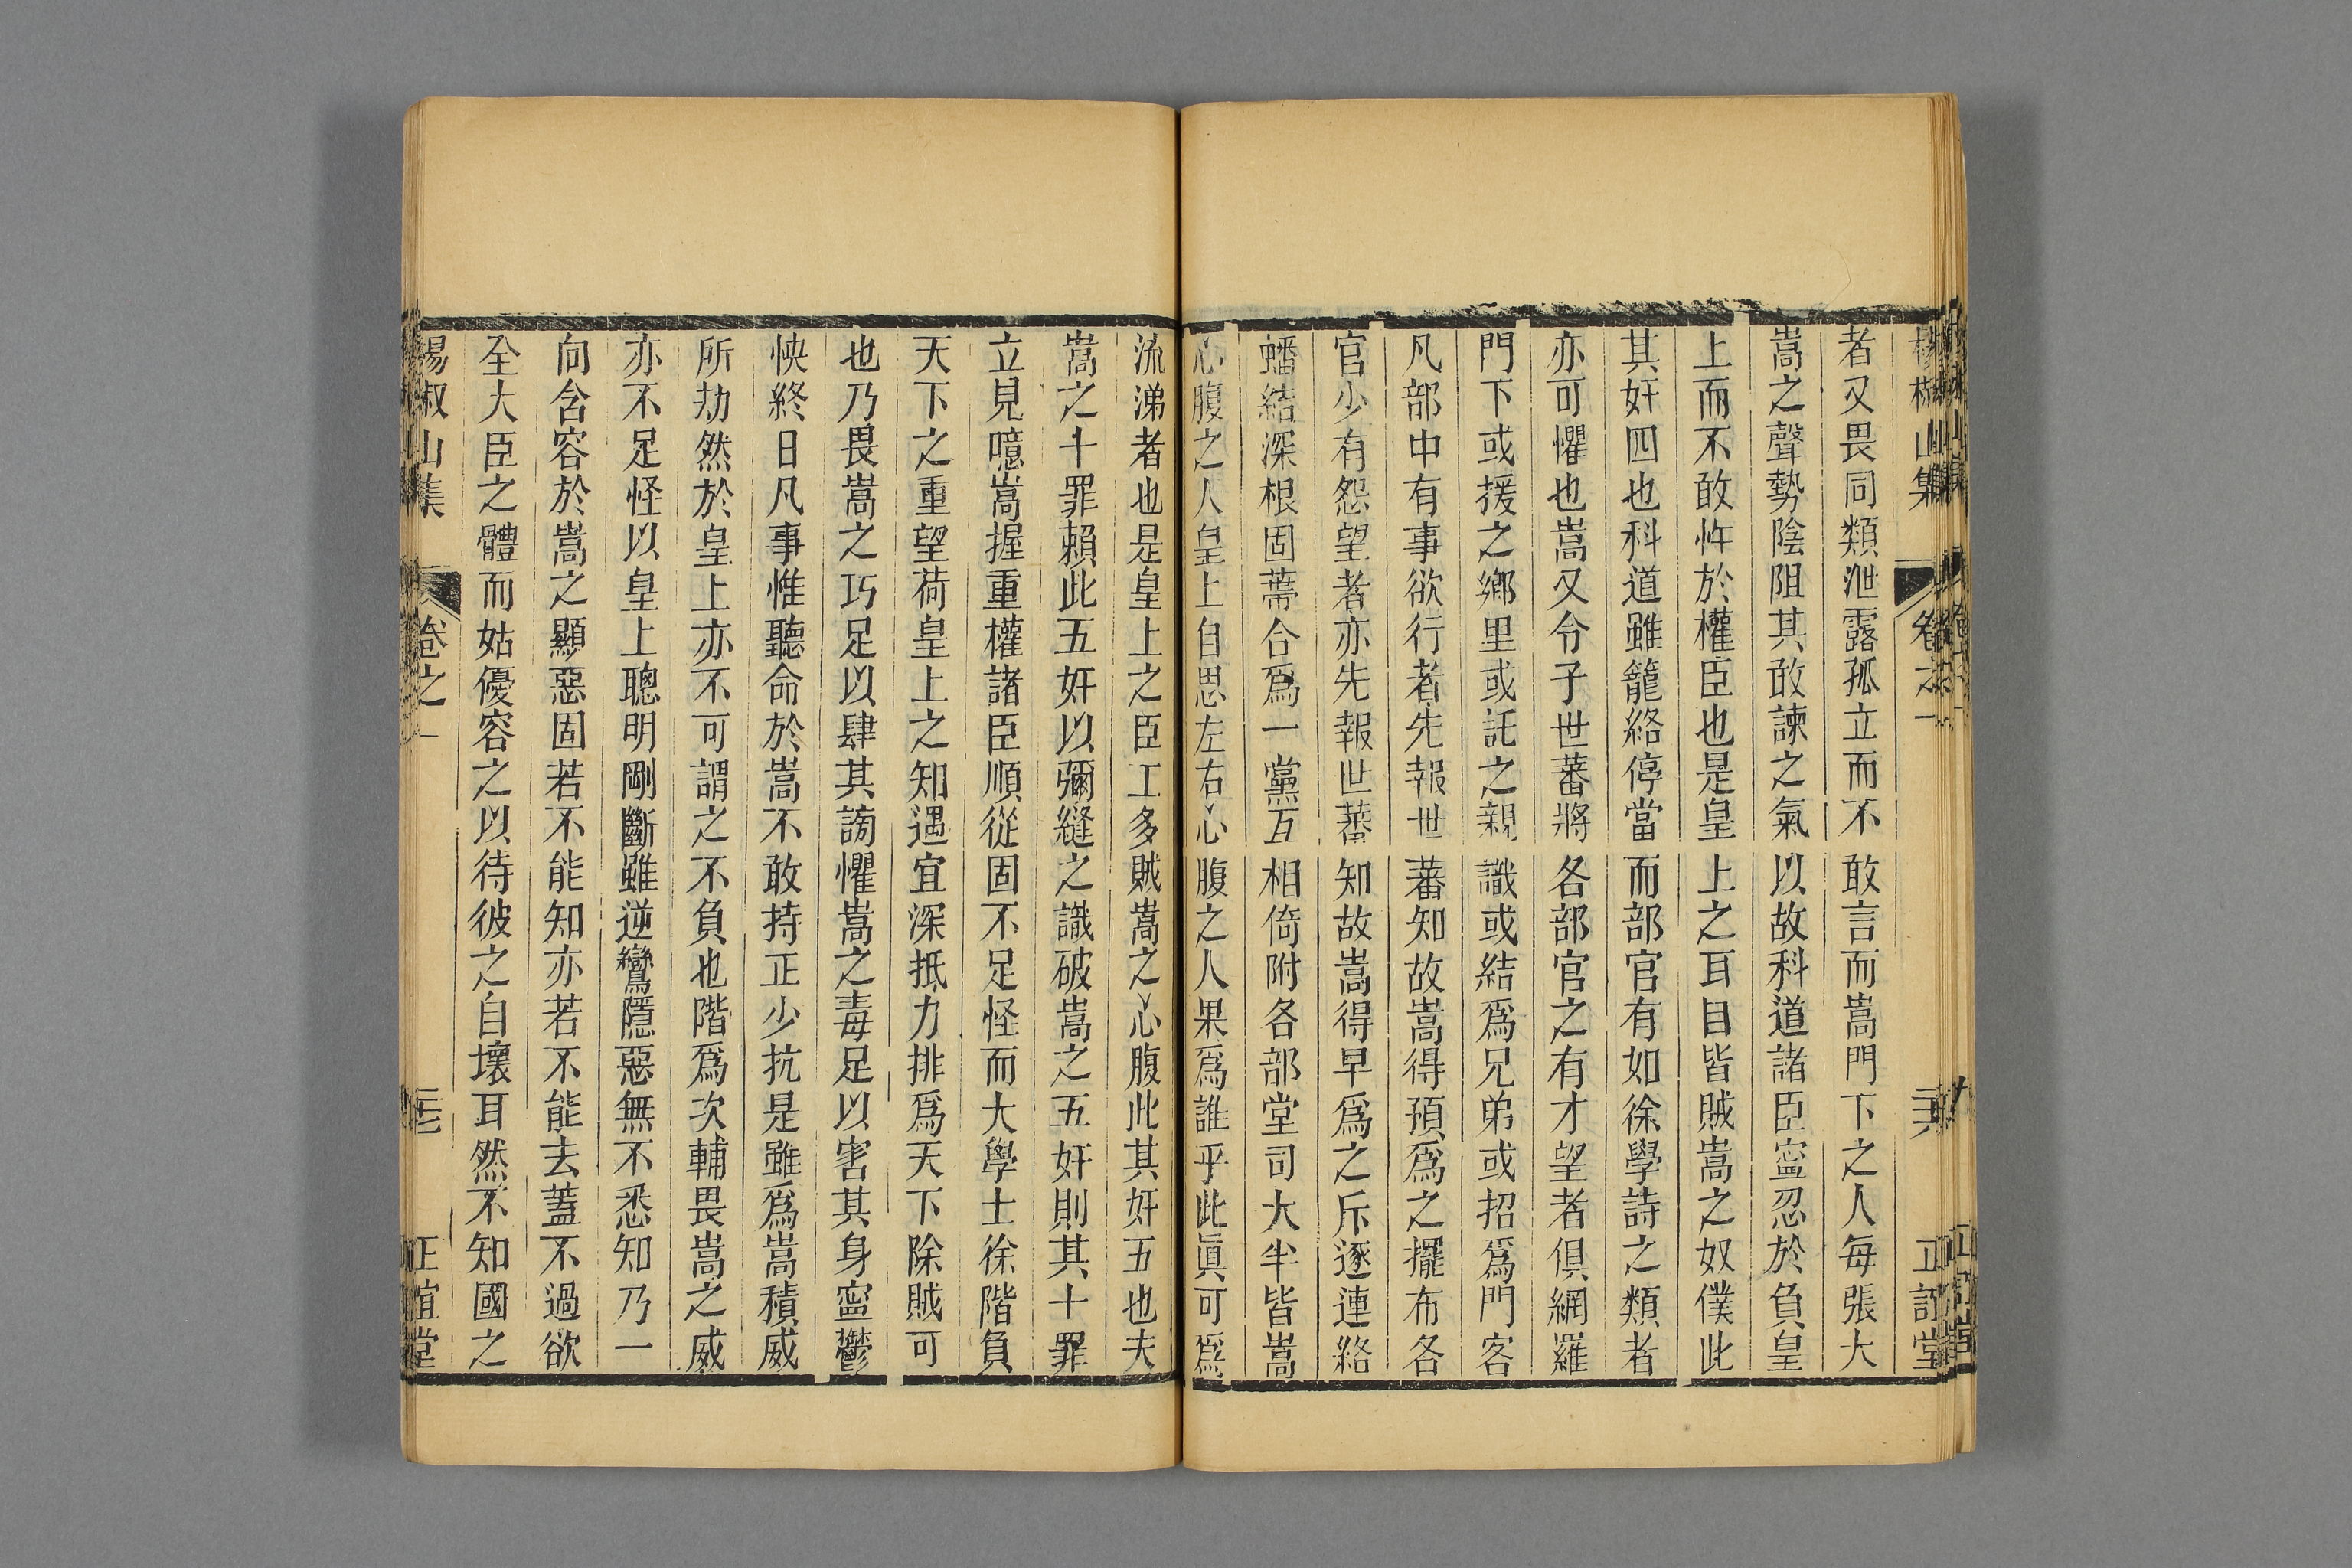 楊椒山集 卷之一 正誼堂
者又畏同類泄露孤立而不敢言而嵩門下之人每張大
嵩之聲勢陰阻其敢諫之氣以故科道諸臣寍忍於負皇
上而不敢忤於權臣也是皇上之耳目皆賊嵩之奴僕此
其奸四也科道雖籠絡停當而部官有如徐學詩之類者
亦可懼也嵩又令子世蕃將各部官之有才望者俱網羅
門下或援之鄉里或託之親識或結爲兄弟或招爲門客
凡部中有事欲行者先報世蕃知故嵩得預爲之擺布各
官少有怨望者亦先報世蕃知故嵩得早爲之斥逐連絡
蟠結深根固蔕合爲一黨互相倚附各部堂司大半皆嵩
心腹之人皇上自思左右心腹之人果爲誰乎此眞可爲
流涕者也是皇上之臣工多賊嵩之心腹此其奸五也夫
嵩之十罪賴此五奸以彌縫之識破嵩之五奸則其十罪
立見噫嵩握重權諸臣順從固不足怪而大學士徐階負
天下之重望荷皇上之知遇宜深抵力排爲天下除賊可
也乃畏嵩之巧足以肆其謗懼嵩之毒足以害其身寍鬱
怏終日凡事惟聽命於嵩不敢持正少抗是雖爲嵩積威
所劫然於皇上亦不可謂之不負也階爲次輔畏嵩之威
亦不足怪以皇上聰明剛斷雖逆鸞隱惡無不悉知乃一
向含容於嵩之顯惡固若不能知亦若不能去蓋不過欲
全大臣之體而姑優容之以待彼之自壞耳然不知國之
楊椒山集 卷之一 正誼堂